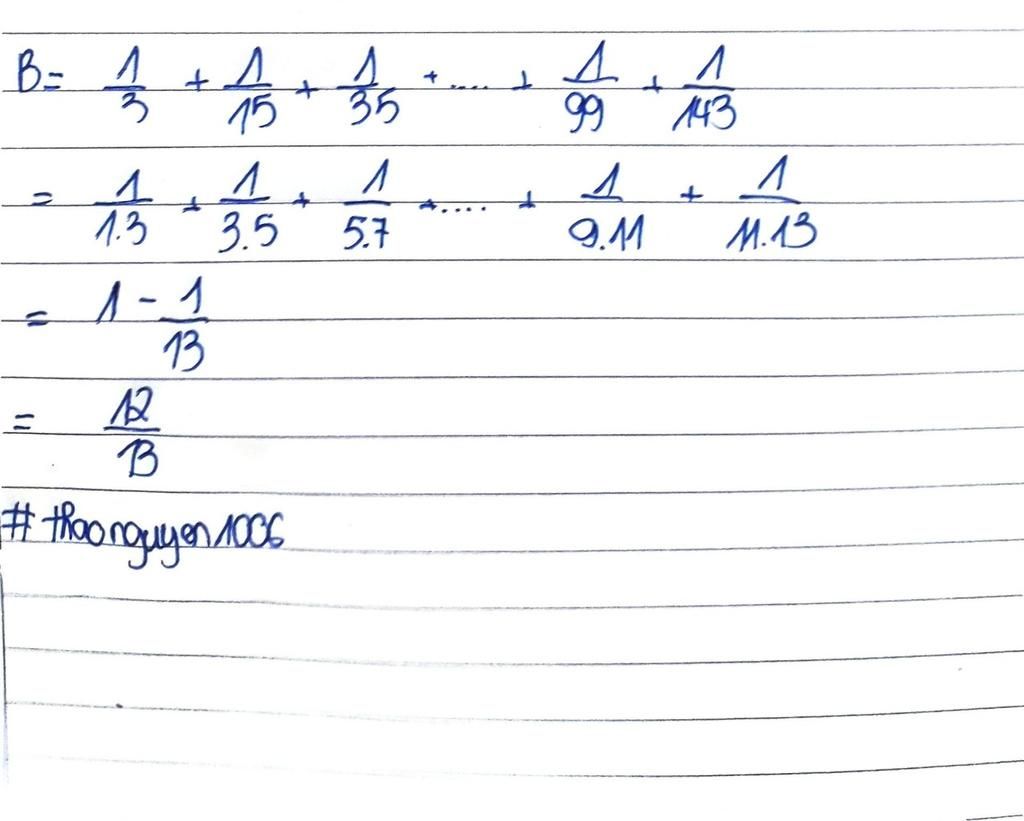 B = 1/3 + 1/15 + 1/35 + .... + 1/99 + 1/143
= 1/1.3 + 1/3.5 + 1/5.7 + .... + 1/9.11 + 1/11.13
= 1 - 1/13
= 12/13
# thaonguyen1006